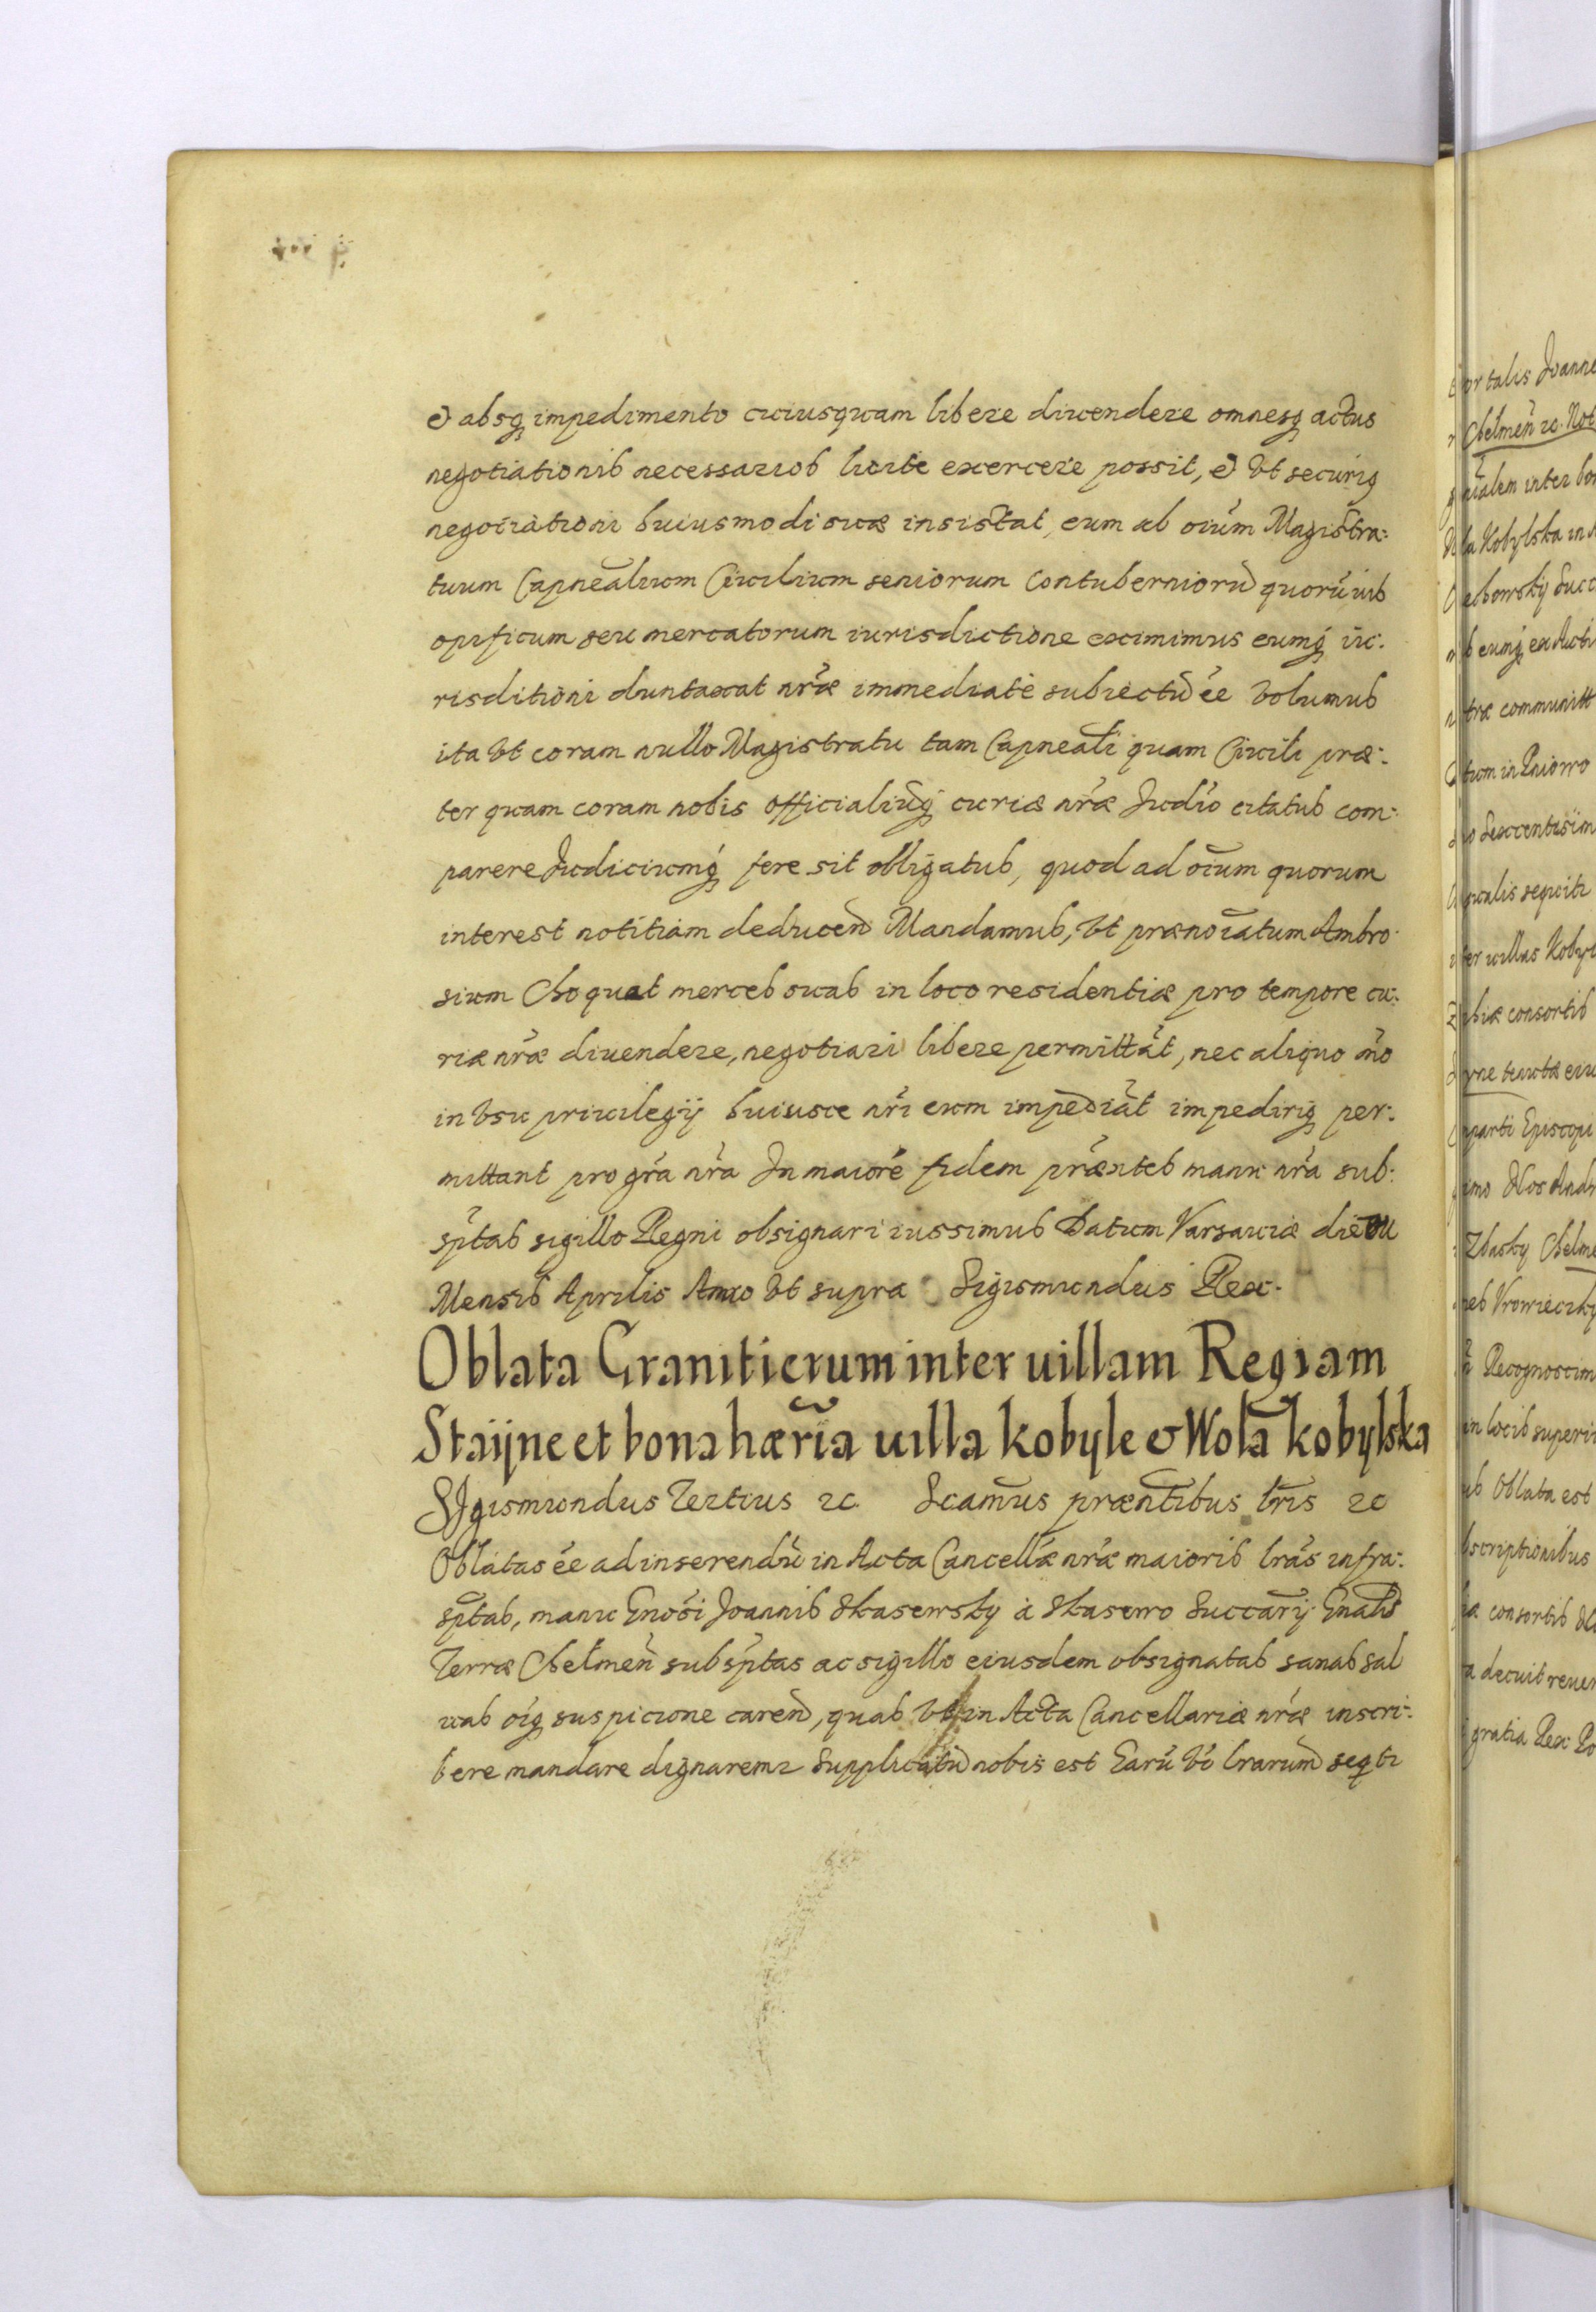 & absq impedimento cuiusquam libere diuendere omnesq actus
negotiationis necessarios licite exercere possit, & vt securiq
negotiationi huiusmodi suæ insistat, eum ab oiũm Magistra:
tuum Capnealium Ciuilium seniorum contuberniorũ quorũuis
opificum seu mercatorum iurisdictione eximimus eumq́ iu:
risditioni duntaxat nrǽ immediatè subiectũ ée volumus
ita vt coram nullo Magistratu tam Capneali quam Ciuili præ:
ter quam coram nobis officialiũq́ curiæ nrǽ Judío citatus com:
parere Judiciumq́ fere sit obligatus, quod ad oiũm quorum
interest notitiam deducend Mandamus, vt prænoíatum Ambro:
sium Choquet merces suas in loco residentiæ pro tempore cu:
riæ nrǽ diuendere, negotiari libere permittãt, nec aliquo mõ
in vsu priuilegij huiusce nrí eum impediãt impedirig per:
mittant pro grá nrá In maioré fidem præntes manu nrá sub:
sptas sigillo Regni obsignari iussimus Datum Varsauiæ die
Mensis Aprilis Anno vt supra Sigismundus Rex.
Oblata Granitierum inter uillam Regiam
Staijne et bona hærĩa uilla kobyle & Wola kobylska
SIgismundus Tertius 2c. Scamũs præntibus lrĩs 2c
Oblatas ée ad inserendũ in Acta Cancellǽ nrǽ maioris lrás infra:
sptas, manu Gnosi Joannis Stasewsky à Stasewo Succarij Gnalis
Terræ Chelmeñ subsptas ac sigillo eiusdem obsignatas sanas sal
uas oíq suspicione carend, quas vt in Acta Cancellariæ nrǽ inscri:
bere mandare dignaremr supplicatũ nobis est Earũ vó lrarum seqtr
or talis Joanne
Chelmeñ 2c. Not
nalem inter bo
la Kobylska in
ebowsky Succ
eumq ex Acti
træ communitt
tum in Kniowo
sexcentesim
inalis sequitr
er uillas Kobyl
biæ consortis
yne tentæ eiu
parti Episcopi
imo Nos Andr
Zbasky Chelme
Vrowieczky
Recognoscim
in locis superi
Oblata est
scriptionibus
consortis
decuit reuer
gratia Rex Po